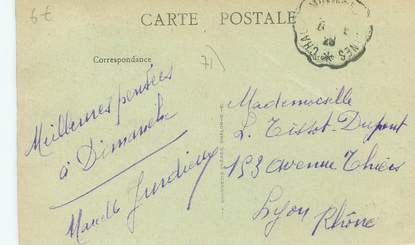 6 €
CARTE POSTALE
Correspondance
71)
Meilleures pensées
à Dimanche
Marcelle
Mademoiselle
L. Tissot-Dupont
153 Avenue Thiers
Lyon Rhône